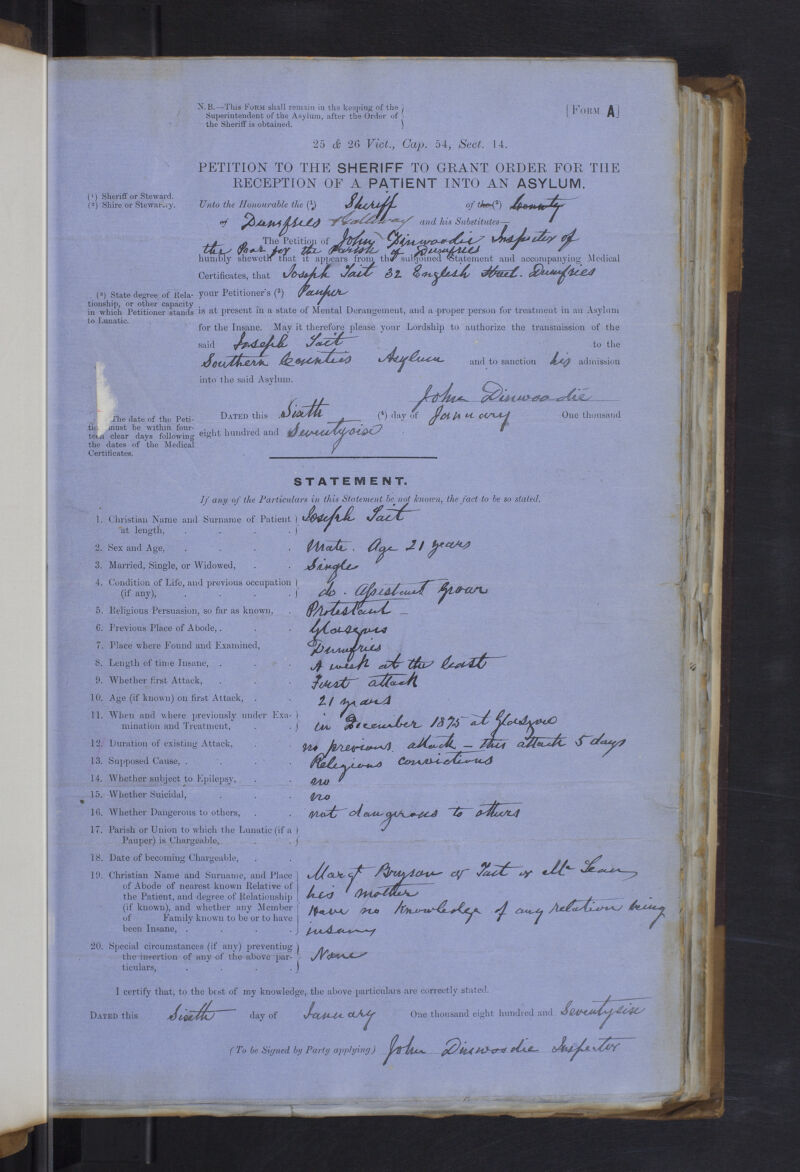 N.B.—This FORM shall remain in the keeping of the
Superintendent of the Asylum, after the Order of
the Sheriff is obtained.
[FORM A]
25 & 26 Vict., Cap. 54, Sect. 14.
PETITION TO THE SHERIFF TO GRANT ORDER FOR THE
RECEPTION OF A PATIENT INTO AN ASYLUM.
(1) Sheriff or Steward.
(2) Shire or Stewartry.
Unto the Honourable the (1) Sheriff of the (2) County
of Dumfries & Galloway and his Substitutes—
The Petition of John Dinwoodie Inspector of
the Poor for the Parish of Dumfries
humbly sheweth that it appears from the subjoined Statement and accompanying Medical
Certificates, that Joseph Tait 32 English Street. Dumfries
(3) State degree of Rela-
tionship, or other capacity
in which Petitioner stands
to Lunatic.
your Petitioner's (3) Pauper
is at present in a state of Mental Derangement, and a proper person for treatment in an Asylum
for the Insane. May it therefore please your Lordship to authorize the transmission of the
said Joseph Tait to the
Southern Counties Asylum and to sanction his admission
into the said Asylum.
John Dinwoodie
The date of the Peti-
must be within four-
teen clear days following
the dates of the Medical
Certificates.
DATED this Sixth (4) day of January One thousand
eight hundred and Seventysix
STATEMENT.
If any of the Particulars in this Statement be not known, the fact to be so stated.
1. Christian Name and Surname of Patient at length, Joseph Tait
2. Sex and Age, Male. Age 21 years
3. Married, Single, or Widowed, Single
4. Condition of Life, and previous occupation (if any), do. Assistant Grocer
5. Religious Persuasion, so far as known, Protestant
6. Previous Place of Abode, Glasgow
7. Place where Found and Examined, Dumfries
8. Length of time Insane, A week at the least
9. Whether first Attack, First attack
10. Age (if known) on first Attack, 21 years
11. When and where previously under Exa-
mination and Treatment, in December 1875 at Glasgow
12. Duration of existing Attack, no previous attack – this attack 5 days
13. Supposed Cause, Religious convictions
14. Whether subject to Epilepsy, no
15. Whether Suicidal, no
16. Whether Dangerous to others, not dangerous to others
17. Parish or Union to which the Lunatic (if a
Pauper) is Chargeable,
18. Date of becoming Chargeable,
19. Christian Name and Surname, and Place
of Abode of nearest known Relative of
the Patient, and degree of Relationship
(if known), and whether any Member
of Family known to be or to have
been Insane,
Margt Bryson or Tait or
his mother
Have no knowledge of any relation being
insane
20. Special circumstances (if any) preventing
the insertion of any of the above par-
ticulars,
None
I certify that, to the best of my knowledge, the above particulars are correctly stated.
DATED this Sixth day of January One thousand eight hundred and Seventysix
(To be Signed by Party applying) John Dinwoodie Inspector